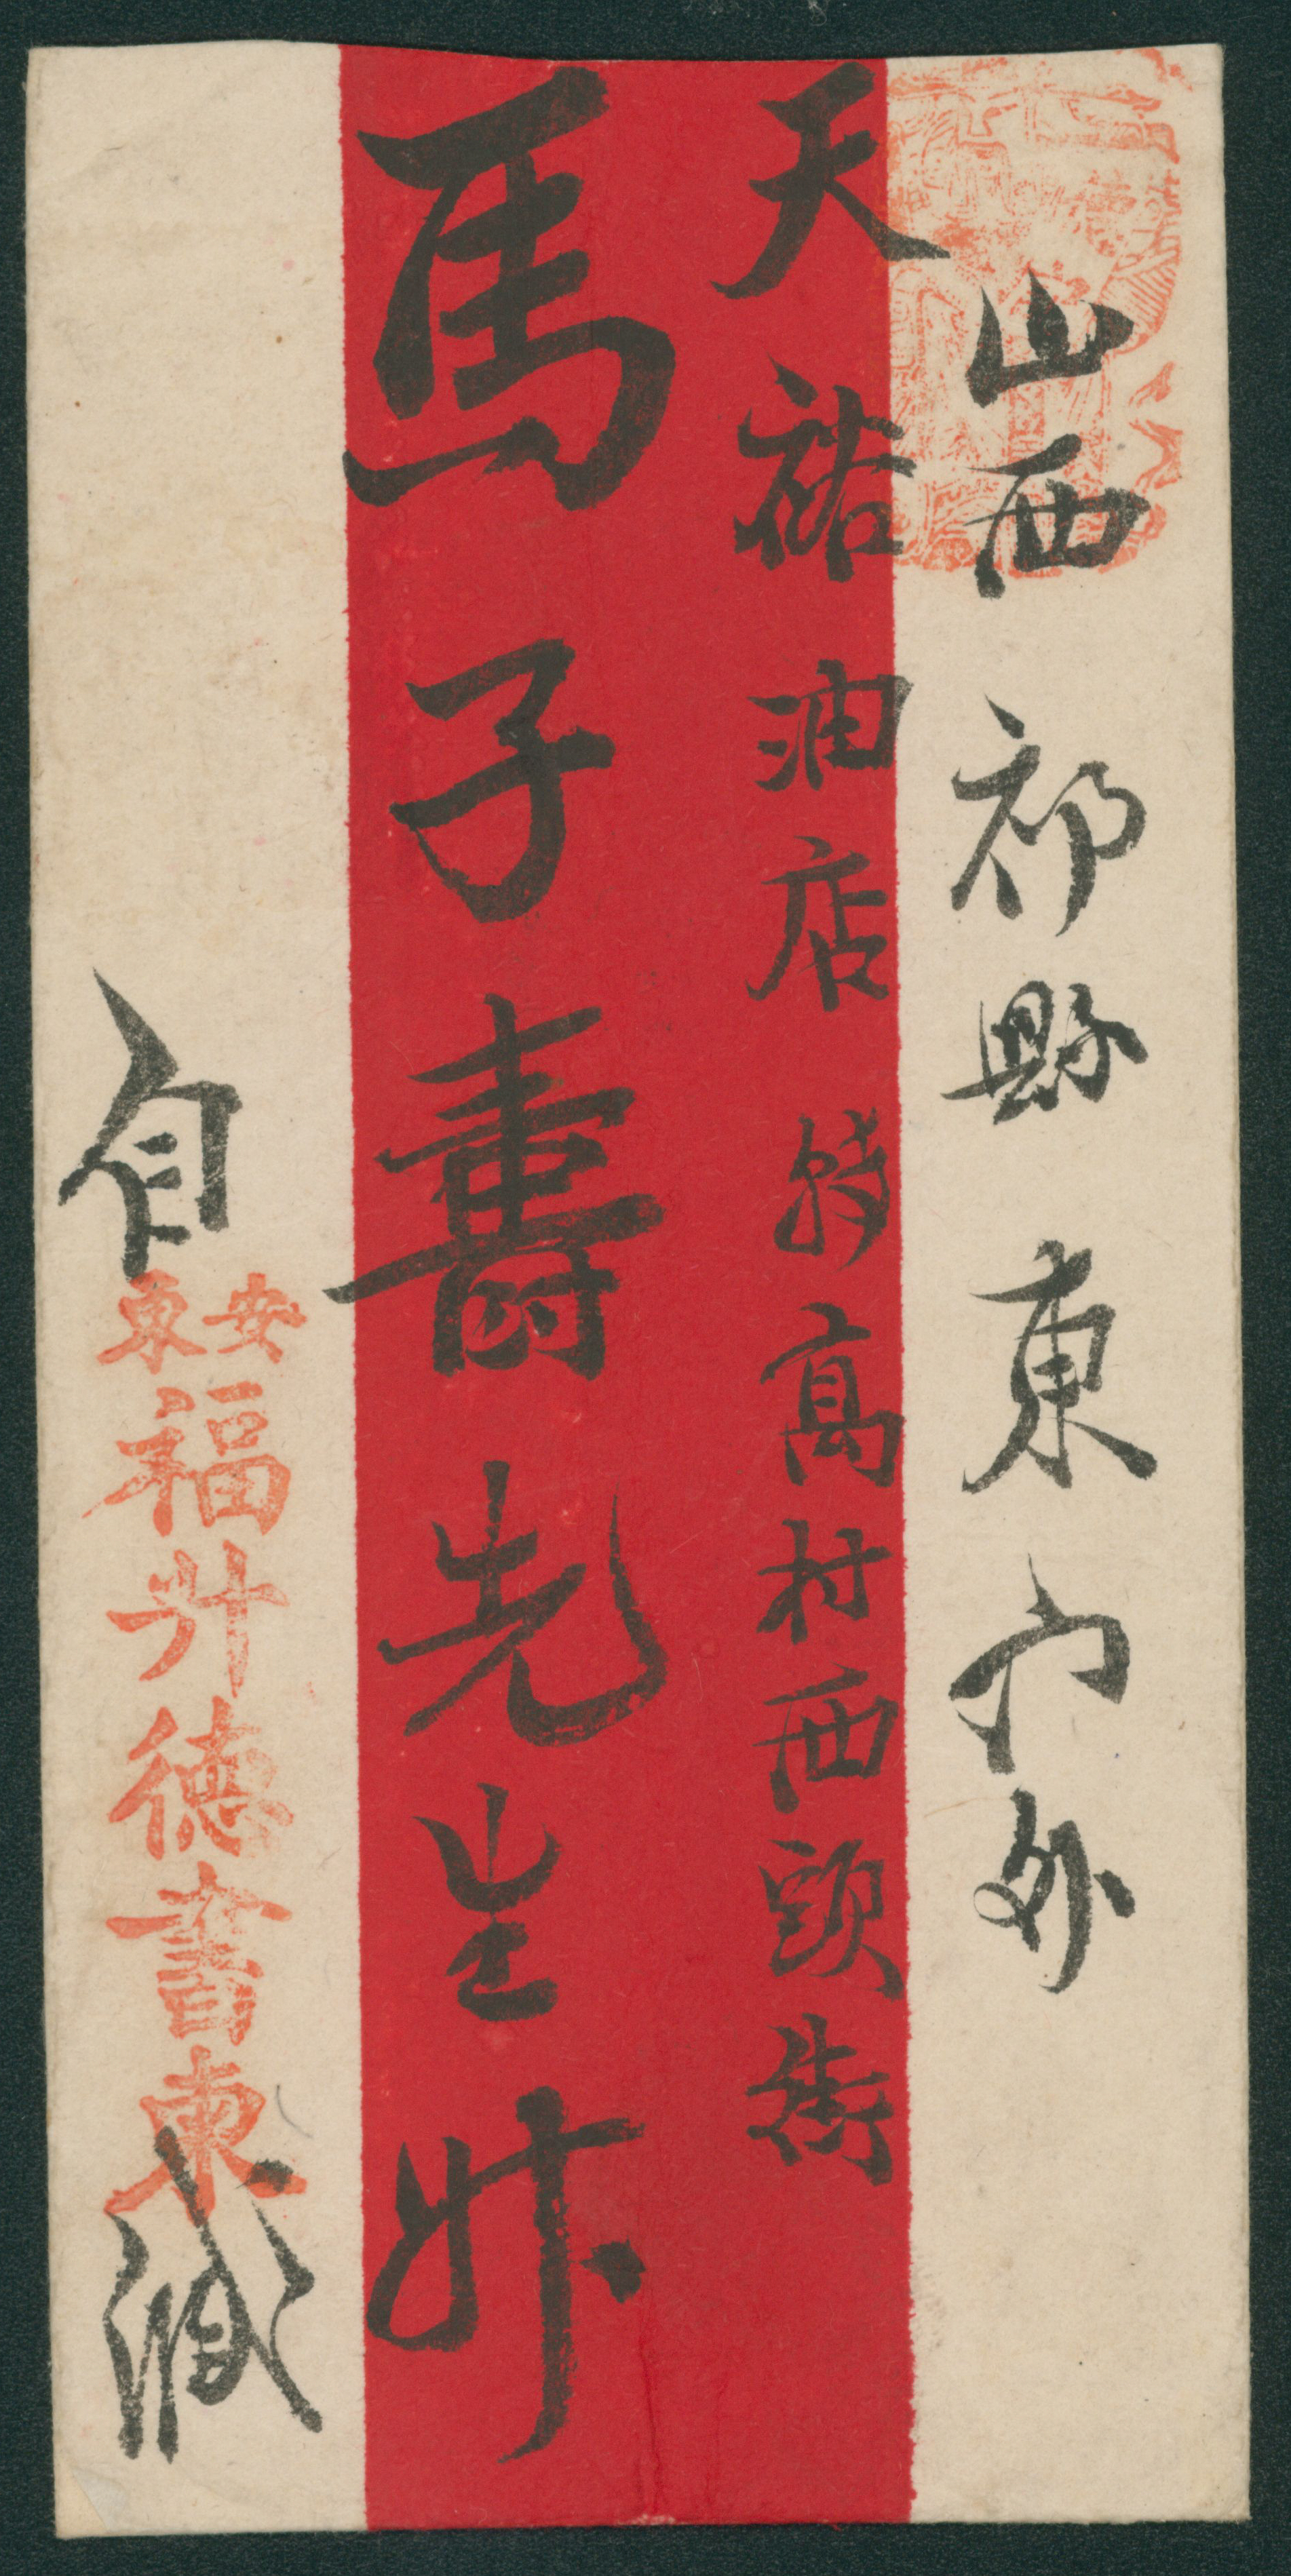 山西祁縣東門外
天祐油店轉高村西頭街
馬子壽先生升
自
安東
福升德書柬
緘